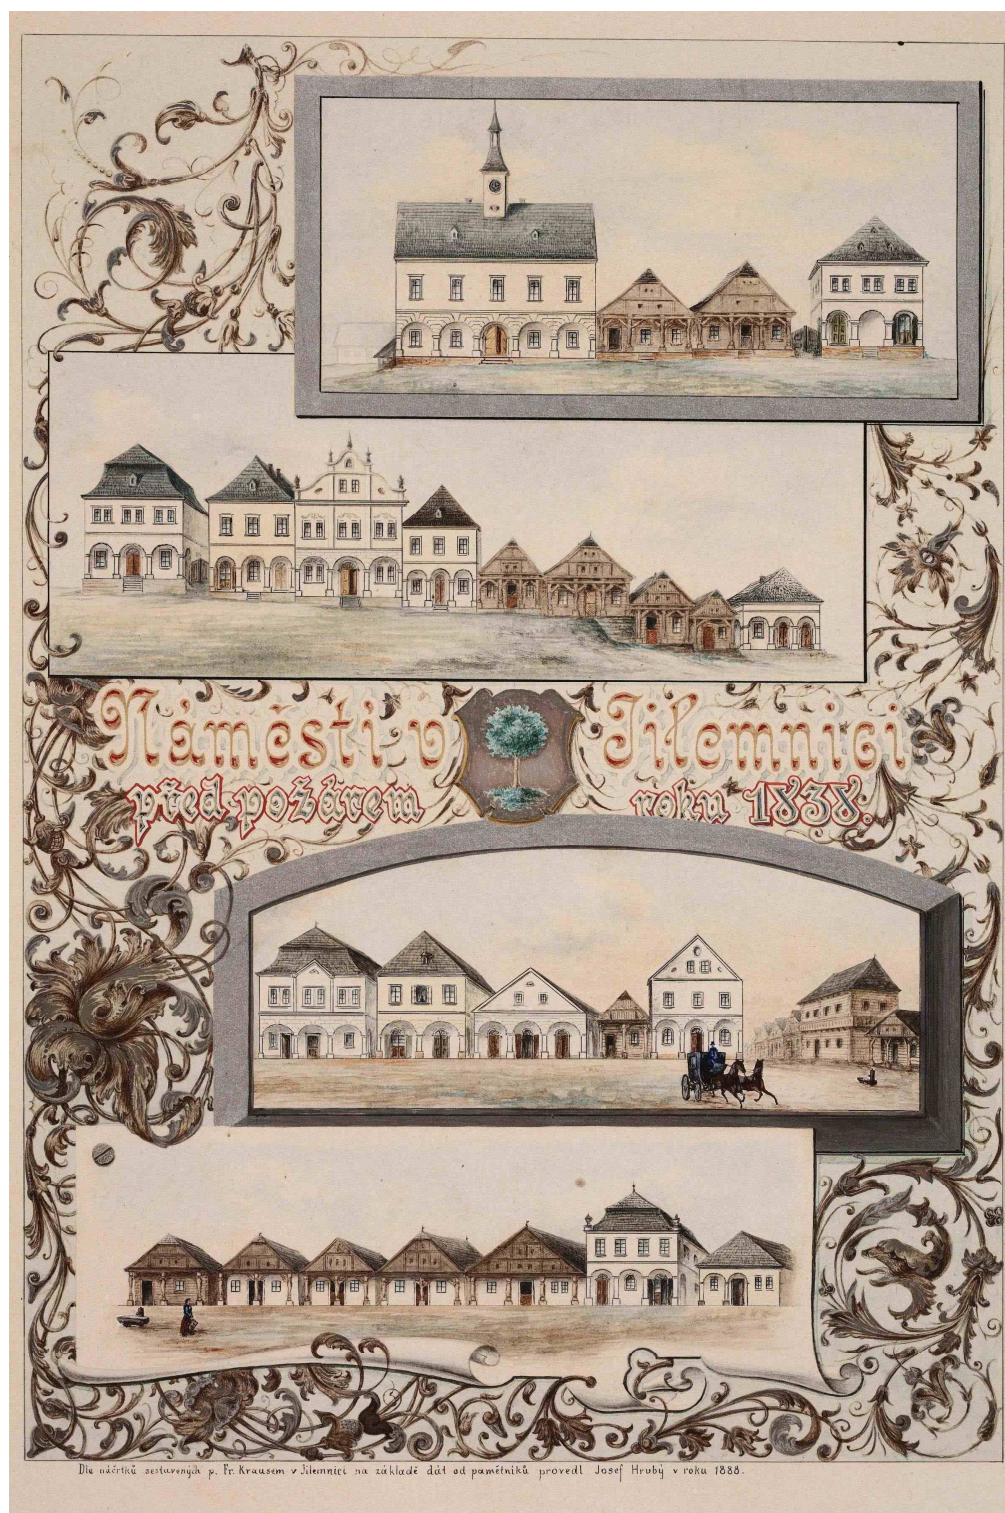 Náměstí v Jilemnici
před požárem roku 1838.
Dle náčrtků sestavených p. Fr. Krausem v Jilemnici na základě dát od pamětníků provedl Josef Hrubý v roku 1888.